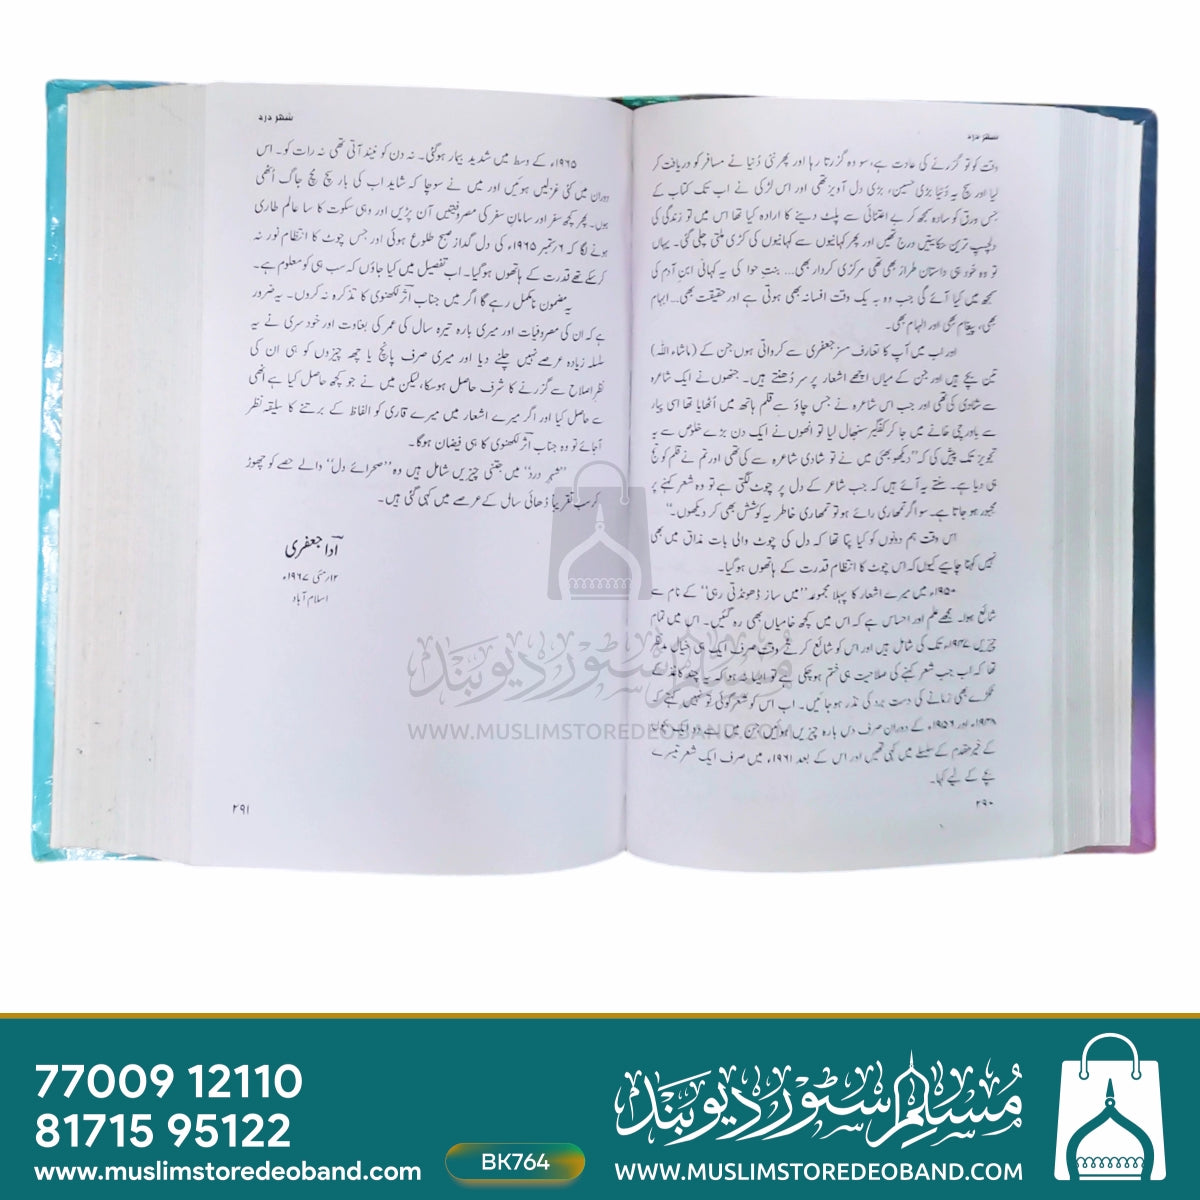 شہر درد
وقت کو تو گزرنے کی عادت ہے، سو وہ گزرتا رہا اور پھر نئی دُنیا نے مسافر کو دریافت کر
لیا اور سچ یہ دُنیا بڑی حسین، بڑی دل آویز تھی اور اس لڑکی نے اب تک کتاب کے
جس ورق کو سادہ سمجھ کر بے اعتنائی سے پلٹ دینے کا ارادہ کیا تھا اس میں تو زندگی کی
دلچسپ ترین حکایتیں درج تھیں اور پھر کہانیوں سے کہانیوں کی کڑی ملتی چلی گئی۔ یہاں
تو وہ خود ہی داستان طراز بھی تھی مرکزی کردار بھی... بنتِ حوا کی یہ کہانی ابنِ آدم کی
سمجھ میں کیا آئے گی جب وہ بہ یک وقت افسانہ بھی ہوتی ہے اور حقیقت بھی... ابہام
بھی، پیغام بھی اور الہام بھی۔
اور اب میں آپ کا تعارف مسز جعفری سے کرواتی ہوں جن کے (ماشاء اللہ)
تین بچے ہیں اور جن کے میاں اچھے اشعار پر سر دُھنتے ہیں۔ جنھوں نے ایک شاعرہ
سے شادی کی تھی اور جب اس شاعرہ نے جس چاؤ سے قلم ہاتھ میں اُٹھایا تھا اسی پیار
سے باورچی خانے میں جا کر کفگیر سنبھال لیا تو اُنھوں نے ایک دن بڑے خلوص سے یہ
تجویز تک پیش کی کہ ”دیکھو بھئی میں نے تو شادی شاعرہ سے کی تھی اور تم نے قلم کو تج
ہی دیا ہے۔ سنتے یہ آئے ہیں کہ جب شاعر کے دل پر چوٹ لگتی ہے تو وہ شعر کہنے پر
مجبور ہو جاتا ہے۔ سو اگر تمھاری رائے ہو تو تمھاری خاطر یہ کوشش بھی کر دیکھوں۔“
اس وقت ہم دونوں کو کیا پتا تھا کہ دل کی چوٹ والی بات مذاق میں بھی
نہیں کہنا چاہیے کیوں کہ اس چوٹ کا انتظام قدرت کے ہاتھوں ہو گیا۔
۱۹۵۰ء میں میرے اشعار کا پہلا مجموعہ ”میں ساز ڈھونڈتی رہی“ کے نام سے
شائع ہوا۔ مجھے علم اور احساس ہے کہ اس میں کچھ خامیاں بھی رہ گئیں۔ اس میں تمام
چیزیں ۱۹۴۷ء تک کی شامل ہیں اور اس کو شائع کرتے وقت صرف ایک ہی خیال مطمح
تھا کہ اب جب شعر کہنے کی صلاحیت ہی ختم ہو چکی ہے تو ایسا نہ ہو کہ یہ چند کاغذ کے
ٹکڑے بھی زمانے کی دست برد کی نذر ہو جائیں۔ اب اس کو شعر گوئی تو نہیں کہتے کہ
۱۹۴۸ء اور ۱۹۵۶ء کے دوران صرف دس بارہ چیزیں ہوئیں جن میں سے دو ایک
کے خیر مقدم کے سلسلے میں کہی تھیں اور اس کے بعد ۱۹۶۱ء میں صرف ایک شعر تیسرے
بچے کے لیے کہا۔
۲۹۰
شہر درد
۱۹۶۵ء کے وسط میں شدید بیمار ہو گئی۔ نہ دن کو نیند آتی تھی نہ رات کو۔ اس
دوران میں کئی غزلیں ہوئیں اور میں نے سوچا کہ شاید اب کی بار سچ مچ جاگ اُٹھی
ہوں۔ پھر کچھ سفر اور سامانِ سفر کی مصروفیتیں آن پڑیں اور وہی سکوت کا سا عالم طاری
ہونے لگا کہ ۶ ستمبر ۱۹۶۵ء کی دل گداز صبح طلوع ہوئی اور جس چوٹ کا انتظام نور نہ
کر سکے تھے قدرت کے ہاتھوں ہو گیا۔ اب تفصیل میں کیا جاؤں کہ سب ہی کو معلوم ہے۔
یہ مضمون نامکمل رہے گا اگر میں جناب اثر لکھنوی کا تذکرہ نہ کروں۔ یہ ضرور
ہے کہ ان کی مصروفیات اور میری بارہ تیرہ سال کی عمر کی بغاوت اور خود سری نے یہ
سلسلہ زیادہ عرصے نہیں چلنے دیا اور میری صرف پانچ یا چھ چیزوں کو ہی ان کی
نظرِ اصلاح سے گزرنے کا شرف حاصل ہو سکا، لیکن میں نے جو کچھ حاصل کیا ہے انھی
سے حاصل کیا اور اگر میرے اشعار میں میرے قاری کو الفاظ کے برتنے کا سلیقہ نظر
آ جائے تو وہ جناب اثر لکھنوی کا ہی فیضان ہو گا۔
”شہرِ درد“ میں جتنی چیزیں شامل ہیں وہ ”صحرائے دل“ والے حصے کو چھوڑ
کر سب تقریباً ڈھائی سال کے عرصے میں کہی گئی ہیں۔
ادا جعفری
۱۲ مئی ۱۹۶۷ء
اسلام آباد
۲۹۱
مسلم سٹور دیوبند
WWW.MUSLIMSTOREDEOBAND.COM
77009 12110
81715 95122
www.muslimstoredeoband.com
BK764
مسلم سٹور دیوبند
WWW.MUSLIMSTOREDEOBAND.COM